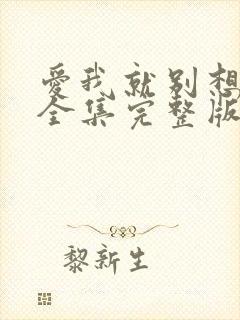 愛我就别想
全集完整版
黎新生